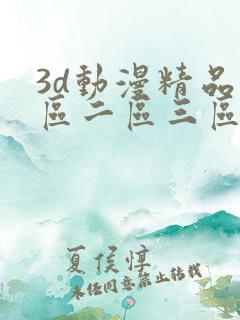 3d動漫精品
區二區三區
夏侯惇
未經同意禁止轉載